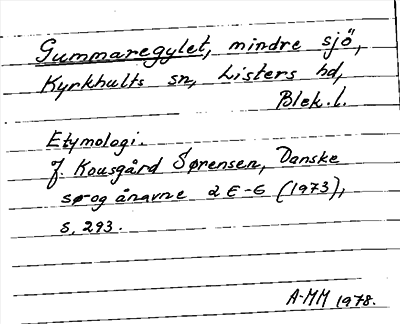 Gummaregylet, mindre sjö,
Kyrkhults sn, Listers hd,
Blek. l.
Etymologi.
J. Kousgård Sørensen, Danske
sø- og ånavne 2 E-G (1973),
s. 293.
A-MM 1978.